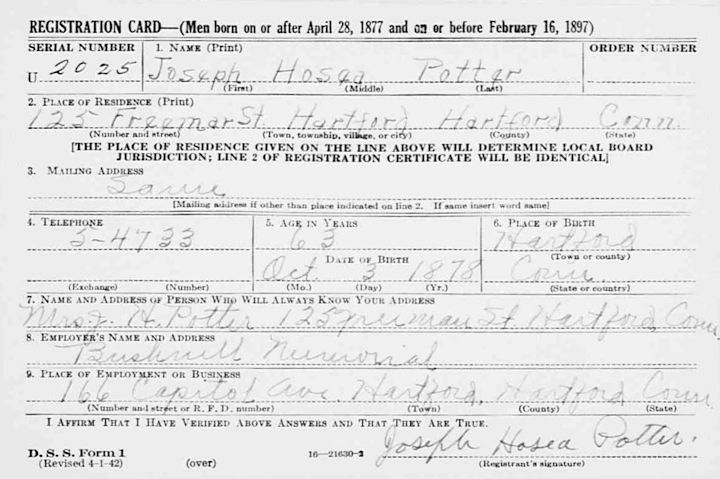 REGISTRATION CARD—(Men born on or after April 28, 1877 and on or before February 16, 1897)
SERIAL NUMBER 1. NAME (Print) ORDER NUMBER
U 2025 Joseph Hosea Potter
(First) (Middle) (Last)
2. PLACE OF RESIDENCE (Print)
125 Freeman St. Hartford Hartford Conn.
(Number and street) (Town, township, village, or city) (County) (State)
[THE PLACE OF RESIDENCE GIVEN ON THE LINE ABOVE WILL DETERMINE LOCAL BOARD
JURISDICTION; LINE 2 OF REGISTRATION CERTIFICATE WILL BE IDENTICAL]
3. MAILING ADDRESS
Same
[Mailing address if other than place indicated on line 2. If same insert word same]
4. TELEPHONE 5. AGE IN YEARS 6. PLACE OF BIRTH
5-4733 63 Hartford
DATE OF BIRTH (Town or county)
Oct 3 1878 Conn.
(Exchange) (Number) (Mo.) (Day) (Yr.) (State or country)
7. NAME AND ADDRESS OF PERSON WHO WILL ALWAYS KNOW YOUR ADDRESS
Mrs J. H. Potter 125 Freeman St Hartford, Conn.
8. EMPLOYER'S NAME AND ADDRESS
Bushnell Memorial
9. PLACE OF EMPLOYMENT OR BUSINESS
166 Capitol Ave. Hartford, Hartford Conn
(Number and street or R. F. D. number) (Town) (County) (State)
I AFFIRM THAT I HAVE VERIFIED ABOVE ANSWERS AND THAT THEY ARE TRUE.
Joseph Hosea Potter.
D. S. S. Form 1
(Revised 4-1-42) (over) 16—21630-2 (Registrant's signature)